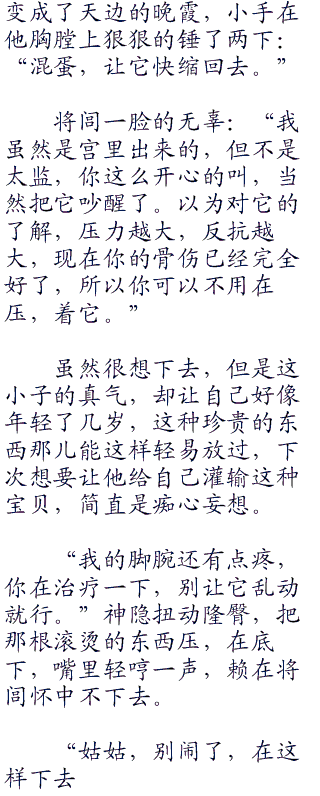 变成了天边的晚霞，小手在
他胸膛上狠狠的锤了两下：
“混蛋，让它快缩回去。”
将闾一脸的无辜：“我
虽然是宫里出来的，但不是
太监，你这么开心的叫，当
然把它吵醒了。以为对它的
了解，压力越大，反抗越
大，现在你的骨伤已经完全
好了，所以你可以不用在
压，着它。”
虽然很想下去，但是这
小子的真气，却让自己好像
年轻了几岁，这种珍贵的东
西那儿能这样轻易放过，下
次想要让他给自己灌输这种
宝贝，简直是痴心妄想。
“我的脚腕还有点疼，
你在治疗一下，别让它乱动
就行。”神隐扭动隆臀，把
那根滚烫的东西压，在底
下，嘴里轻哼一声，赖在将
闾怀中不下去。
“姑姑，别闹了，在这
样下去